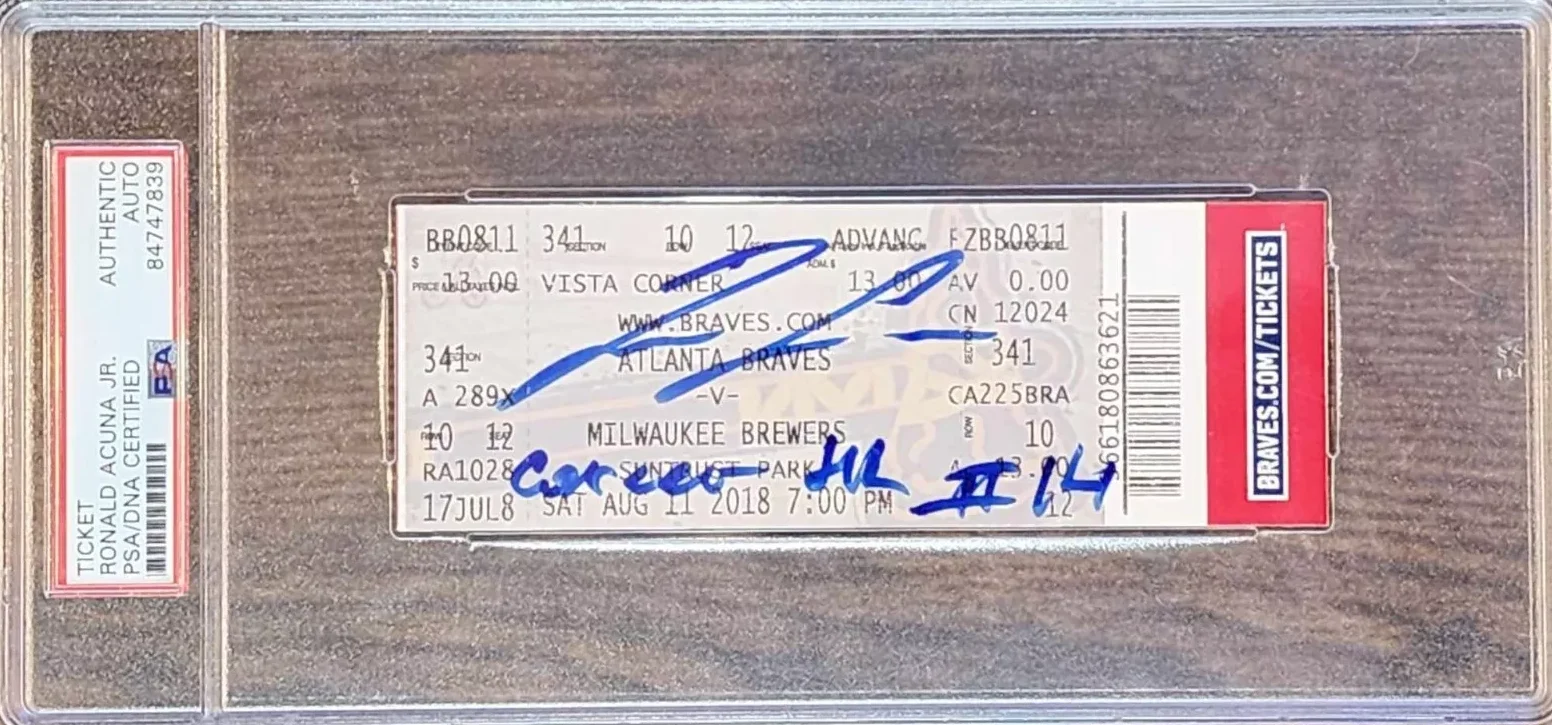 TICKET
RONALD ACUNA JR.
PSA/DNA CERTIFIED
AUTHENTIC
AUTO
84747839
PSA
BB0811 341 10 12 ADVANC EZBB0811
$ 13.00 VISTA CORNER ADM.$ 13.00 AV 0.00
WWW.BRAVES.COM CN 12024
341 SECTION ATLANTA BRAVES SECTION 341
A 289X -V- CA225BRA
10 12 MILWAUKEE BREWERS ROW 10
RA1028 SUNTRUST PARK A 13.00
17JUL8 SAT AUG 11 2018 7:00 PM 12
Career HR #14
661808863621
BRAVES.COM/TICKETS